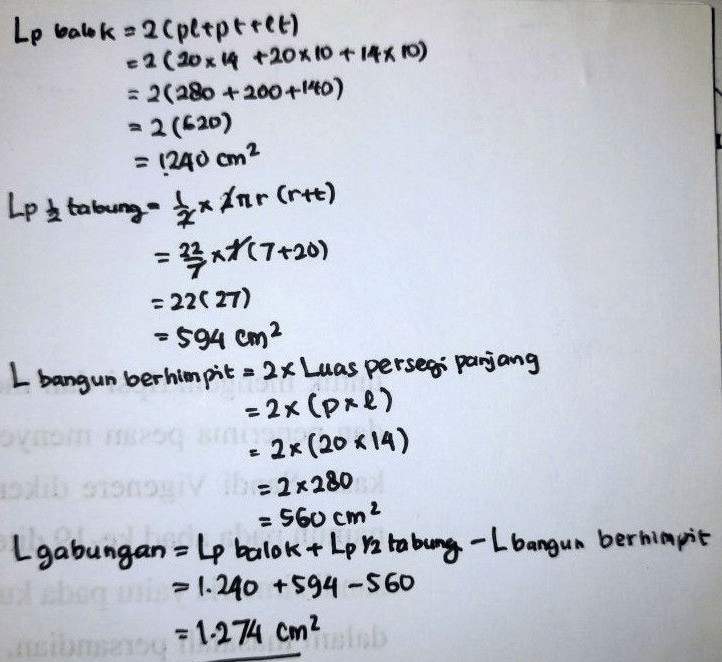 Lp balok = 2(pl+pt+lt)
= 2(20x14 +20x10 + 14x10)
= 2(280 +200+140)
= 2(620)
= 1240 cm²
Lp ½ tabung = 1/2 x 2πr (r+t)
= 22/7 x 7(7+20)
= 22(27)
= 594 cm²
L bangun berhimpit = 2x Luas persegi panjang
= 2x (pxl)
= 2x (20x14)
= 2x280
= 560 cm²
L gabungan = Lp balok + Lp ½ tabung - L bangun berhimpit
= 1.240 +594 -560
= 1.274 cm²